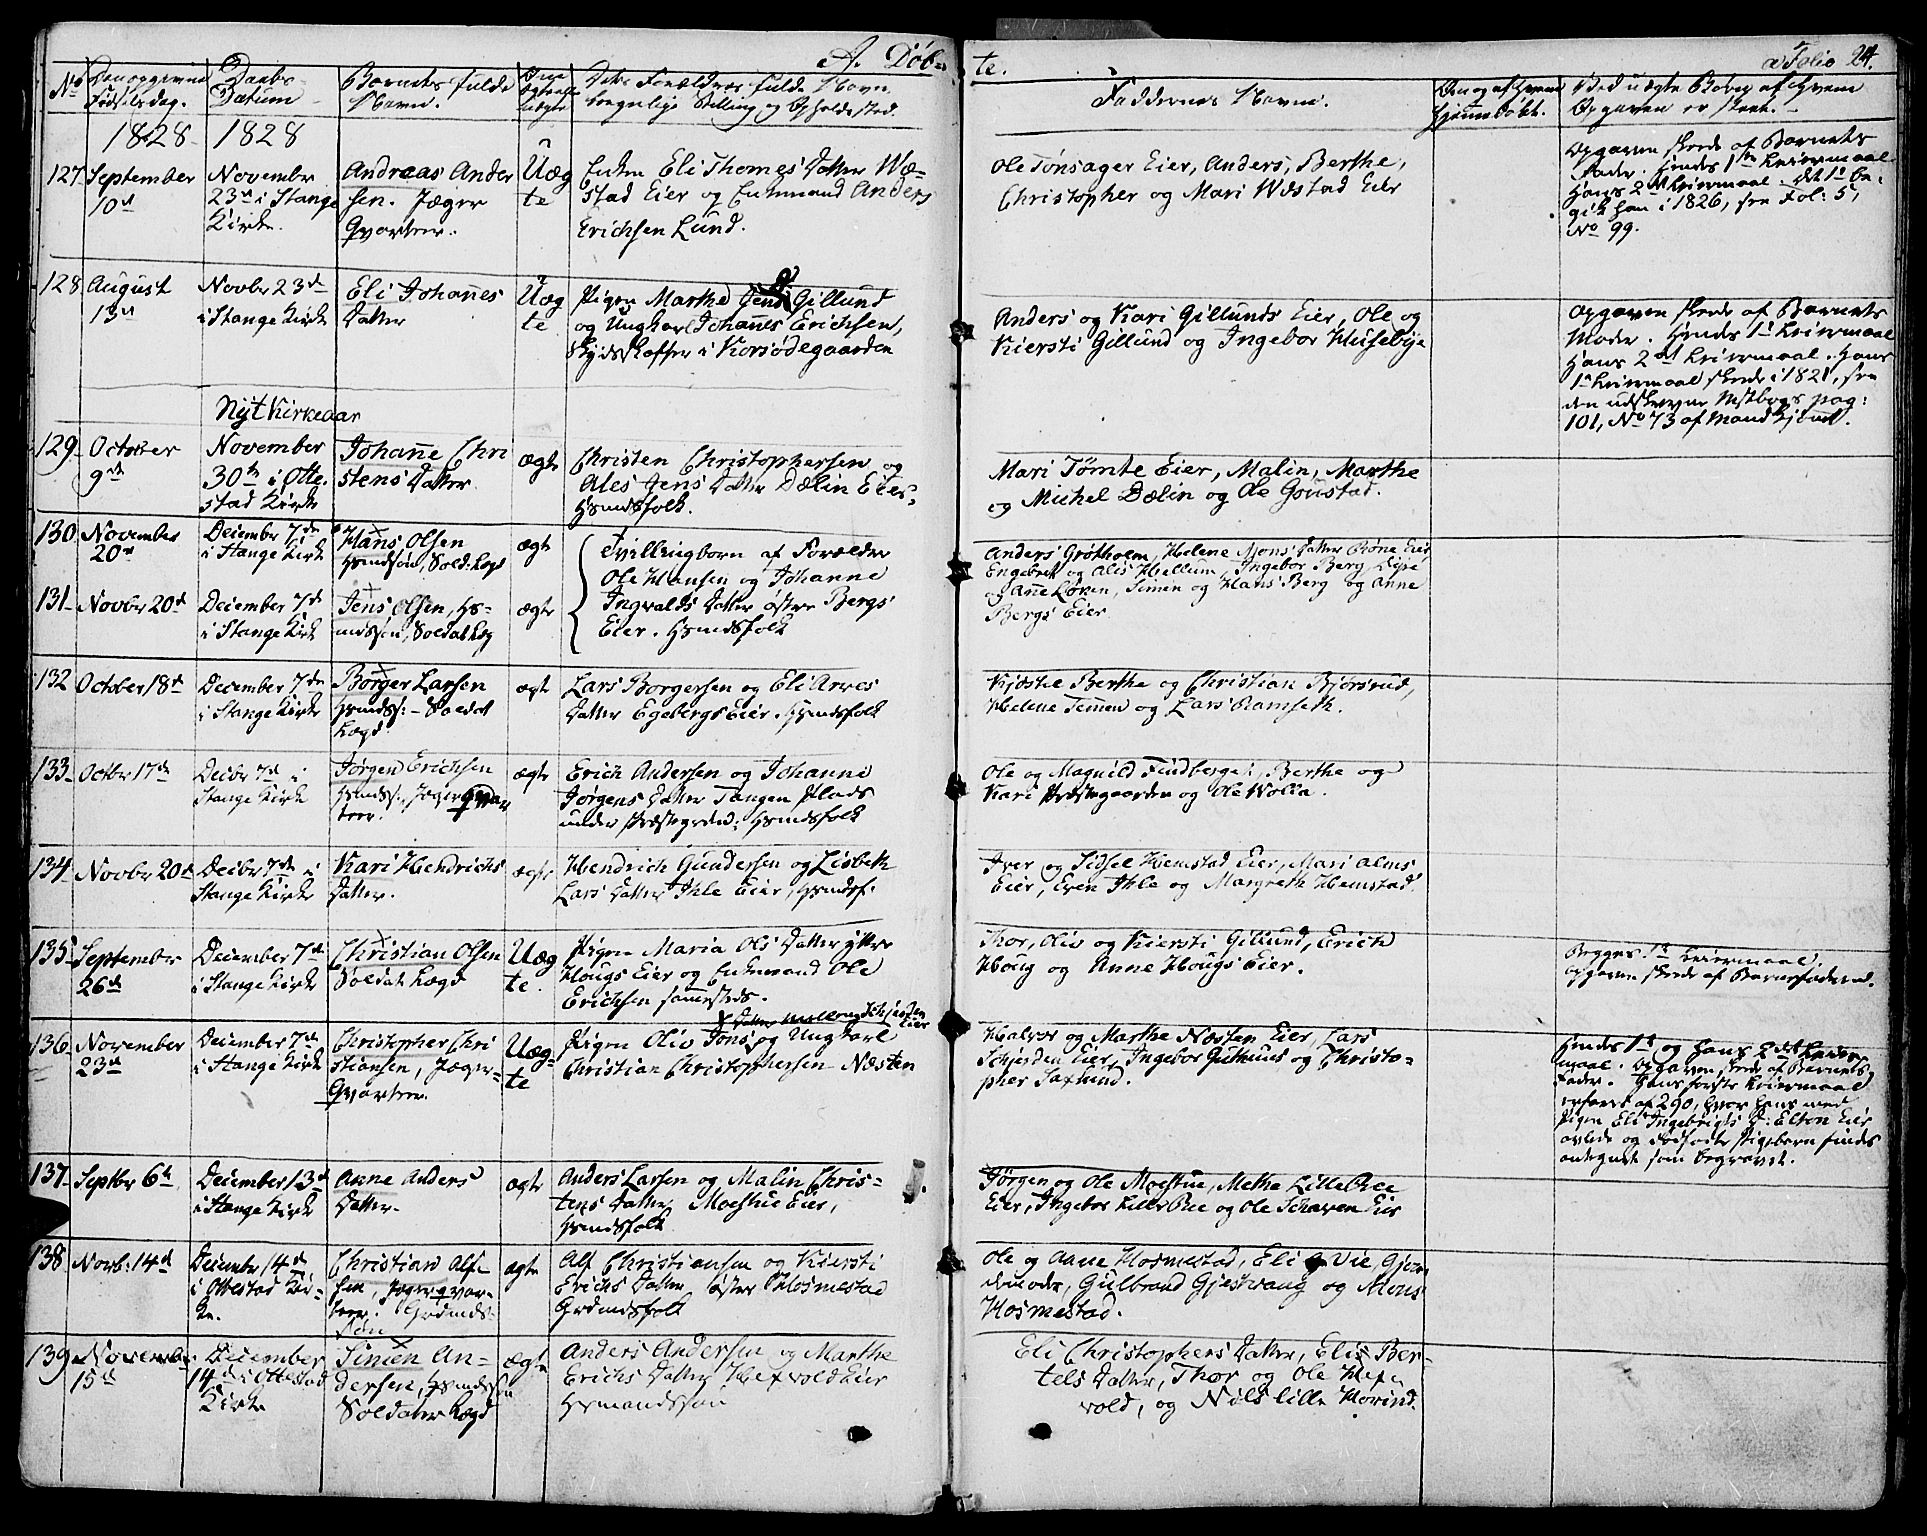 A. Døb-
te.
a Folio 24.
No
Den opgivne Fødselsdag.
Daabs Datum
Barnets fulde Navn.
Om Ægte eller Uægte
Dets Forældres fulde Navn, borgerlige Stilling og Opholdssted.
Faddernes Navne.
Om og af hvem hjemmedøbt.
Ved uægte Børn af hvem Opgaven er skeet.
1828
1828
127
September
10d
November
23d i Stange
Kirke.
Andreas Ander
sen. Jæger
Qvarteer.
Uæg
te
Enken Eli Thomes Datter Wæ-
stad Eier og Enkemand Anders
Erichsen Lund.
Ole Tønsager Eier, Anders, Berthe,
Christopher og Mari Wæstad Eier
Opgaven skede af Barnets
Fader. Hendes 1ste Leiermaal
Hans 2det Leiermaal. Det 1ste be-
gik han i 1826, see Fol: 5,
No 99.
128
August
13d
Novbr 23d
i Stange Kirke
Eli Johannes
Datter
Uæg
te
Pigen Marthe Jens Gillund
og Ungkarl Johannes Erichsen,
Skydsskaffer i Korsødegaarden
Anders og Kari Gillunds Eier, Ole og
Kiersti Gillund og Ingebor Husebye
Opgaven skede af Barnets
Moder. Hendes 1ste Leiermaal
Hans 2det Leiermaal. Hans
1ste Leiermaal skede i 1821, see
den udskrevne Mstbogs pag:
101, No 73 af Mandkjønnet.
Nyt Kirkeaar
129
October
9de
November
30te i Otte-
stad Kirke
Johanne Chri
stens Datter
ægte
Christen Christophersen og
Ales Jens Datter Dælin Eier,
Hsmdsfolk.
Mari Tømte Eier, Malin, Marthe
og Michel Dælin og Ole Goustad.
130
November
20de
December 7de
i Stange Kirke
Hans Olsen
Hsmdssøn, Sold: Lægd
ægte
Tvillingborn af Forældre
Ole Hansen og Johanne
Ingvalds Datter østre Bergs
Eier. Hsmdsfolk
Anders Grøtholm, Helene Mons Datter Røne Eier
Engebret og Alis Hellum, Ingebor Berg Eier
og Anne Løken, Simen og Hans Berg og Anne
Bergs Eier.
131
Novbr 20d
December 7d
i Stange Kirke
Jens Olsen, Hs-
mdssøn, Soldat Lægd
ægte
132
October 18d
December 7de
i Stange Kirke
Børger Larsen
Hsmdss: - Soldat
Lægd
ægte
Lars Borgersen og Eli Arnes
Datter Egebergs Eier. Hsmdsfolk
Kjøstel Berthe og Christian Bjørsrud,
Helene Temmen og Lars Ramseth.
133
Octbr 17de
Decbr 7d i
Stange Kirke
Jørgen Erichsen
Hsmdss:, Jæger Qvar
teer.
ægte
Erich Andersen og Johanne
Jørgens Datter Tangen Plads
under Præstegrden: Hsmdsfolk
Ole og Magnild Findberget, Berthe og
Kari Præstegaarden og Ole Wolla.
134
Novbr 20d
Decbr 7de i
Stange Kirke
Kari Hendrichs
Datter.
ægte
Hendrich Gundersen og Lisbeth
Lars Datter Ihle Eier, Hsmdsf:
Iver og Sidsel Hemstad Eier, Mari Alms
Eier, Even Ihle og Margrethe Hemstad.
135
September
26de
December 7de
i Stange Kirke
Christian Olsen
Soldat Lægd
Uæg
te.
Pigen Maria Ols Datter yttre
Hougs Eier og Enkemand Ole
Erichsen sammesteds.
Thor, Oliv og Kiersti Gillund, Erich
Houg og Anne Hougs Eier.
Begges 1ste Leiermaal.
Opgaven skede af Barnefaderen.
136
November
23de
December 7de
i Stange Kirke
Christopher Chri
stiansen, Jæger-
Qvarteer.
Uæg-
te
Datter Schjerden Eier
Pigen Oliv Jons og Ungkarl
Christian Christophersen Næsten
Halvor og Marthe Næsten Eier, Lars
Schjerden Eier, Ingebor Guthuus og Christo-
pher Saxlund.
Hendes 1ste og hans 2det Leier-
maal. Opgaven skede af Barnets
Fader. Hans første Leiermaal
erfares af 290, hvor hans med
Pigen Eli Ingebrigts D: Elton Eier
avlede og Pigebarn findes
antegnet som begravet.
137
Septbr 6te
December 13d
i Stange Kirke
Anne Anders
Datter.
ægte
Anders Larsen og Malin Chris-
tens Datter Moestue Eier,
Hsmdsfolk
Jørgen og Ole Moestue, Methe Lille Ree
Eier, Ingebor Lille Ree og Ole Schaven Eier
138
Novb: 14d
December 14d
i Ottestad Kir-
ke.
Christian Alf-
sen, Jæger qvar-
teer. Grdmds-
søn
ægte
Alf Christiansen og Kiersti
Erichs Datter øster Hosmestad
Grdmdsfolk
Ole og Anne Hosmestad, Eli Vie,
Gulbrand Gjestvang og Mons
Hosmestad.
139
November
15de
December
14de i Ottestad
Kirke
Simen An-
dersen, Hsmdssøn
Soldater Lægd
ægte
Anders Andersen og Marthe
Erichs Datter Hexvold Eier
Hsmandssøn
Eli Christophers Datter, Elis Ber-
tels Datter, Thor og Ole Hex-
vold, og Niels lille Horind.